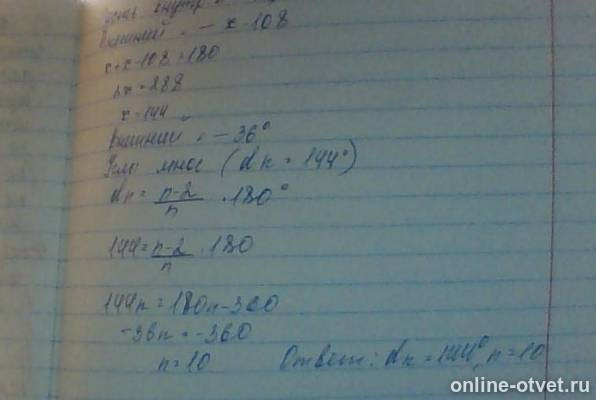 Внешний – x-108
x+x-108=180
2x=288
x=144
Внешний – 36°
(αn = 144°)
αn = n-2/n · 180°
144 = n-2/n · 180
144n = 180n-360
-36n = -360
n = 10
Ответ: αn = 144°, n = 10
online-otvet.ru